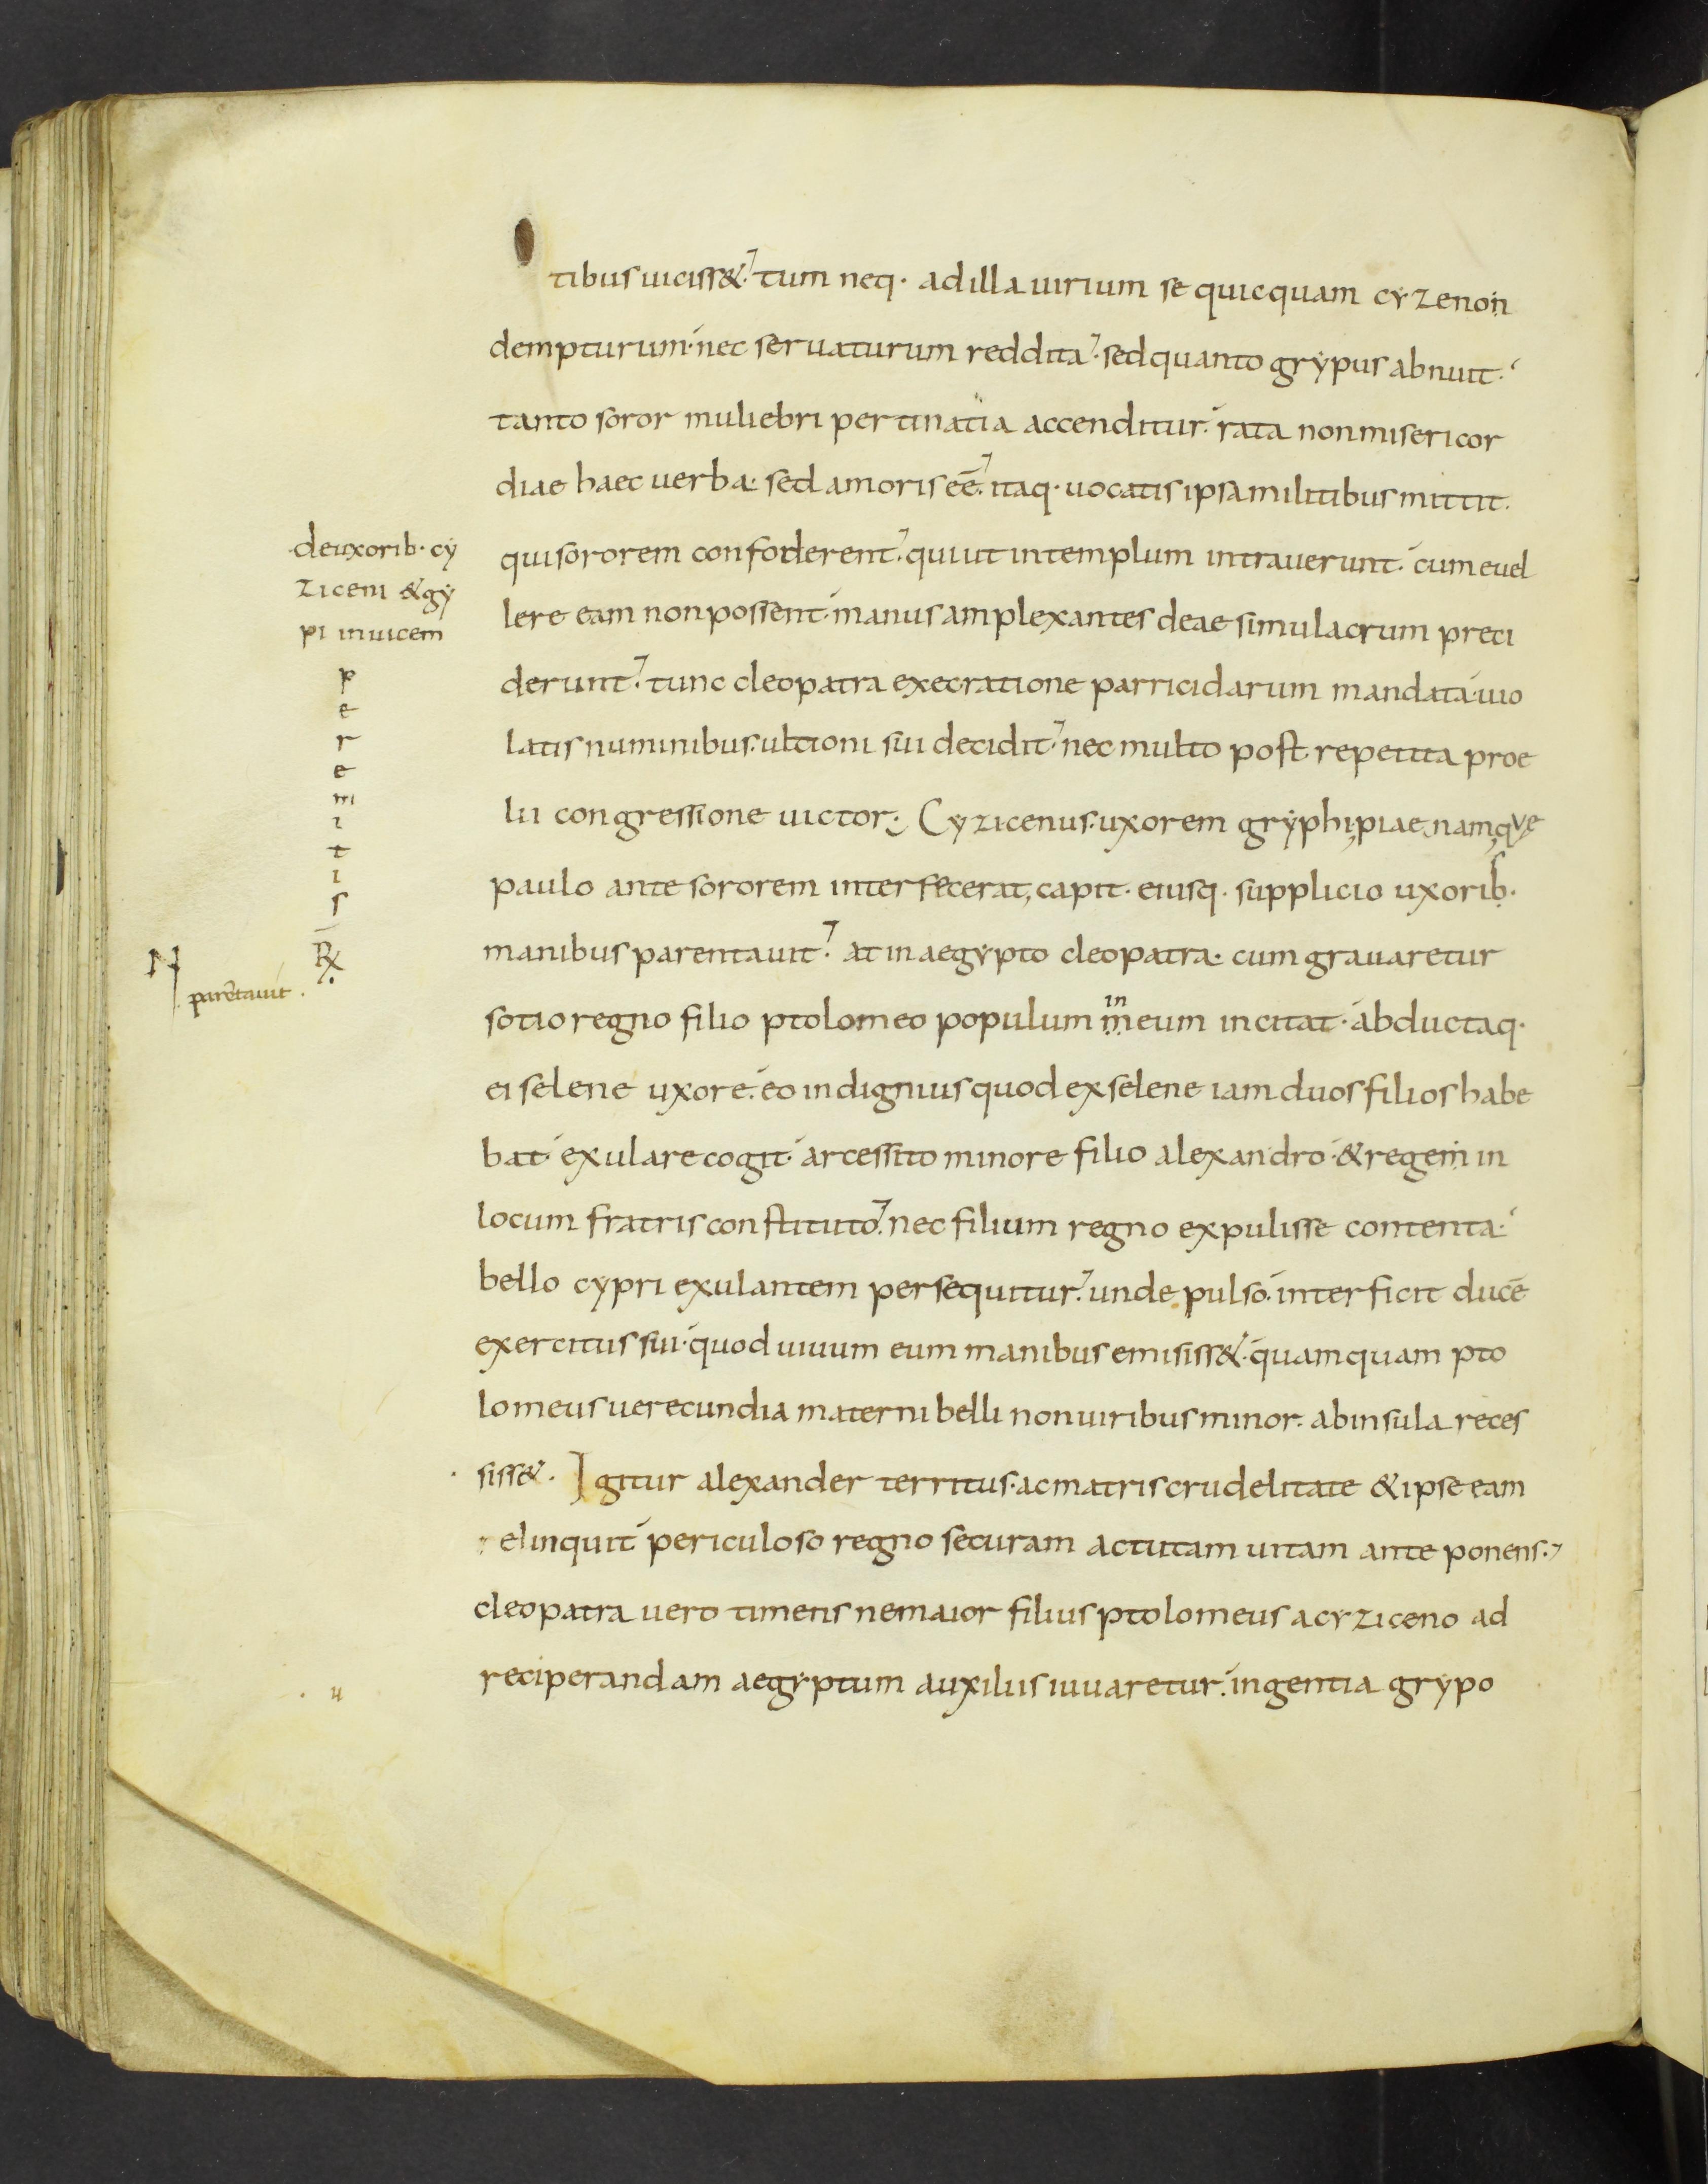 tibus uiciss&. tum neq· ad illa uirium se quicquam cyzenon
dempturum· nec seruaturum reddita. sed quanto grypus abnuit·
tanto soror muliebri pertinatia accenditur. rata non misericor
diae haec uerba. sed amoris eē. itaq· uocatis ipsa militibus mittit.
qui sororem confoderent. qui ut in templum intrauerunt. cum euel
lere eam non possent· manus amplexantes deae simulacrum preci
derunt. tunc cleopatra execratione parricidarum mandata· uio
latis numinibus. ultioni sui decidit. nec multo post repetita proe
lii congressione uictor. Cyzicenus. uxorem gryphi, piae namque
paulo ante sororem interfecerat, capit. eiusq· supplicio uxorib·
manibus parentauit. at in aegypto cleopatra. cum grauaretur
sotio regno filio ptolomeo populum in meum incitat· abductaq·
ei selene uxore. eo indignius quod ex selene iam duos filios habe
bat· exulare cogit· arcessito minore filio alexandro· & regem in
locum fratris constituto. nec filium regno expulisse contenta·
bello cypri exulantem persequitur. unde pulso. interficit ducē
exercitus sui· quod uiuum eum manibus emisiss&. quamquam pto
lomeus uerecundia materni belli non uiribus minor. ab insula reces
siss&. Igitur alexander territus· ac matris crudelitate & ipse eam
relinquit periculoso regno securam ac tutam uitam ante ponens.
cleopatra uero timens ne maior filius ptolomeus a cyziceno ad
reciperandam aegyptum auxiliis iuuaretur. ingentia grypo
de uxorib· cy
ziceni & gy
pi inuicem
p
e
r
e
m
i
t
i
s
Rx
N
parētauit.